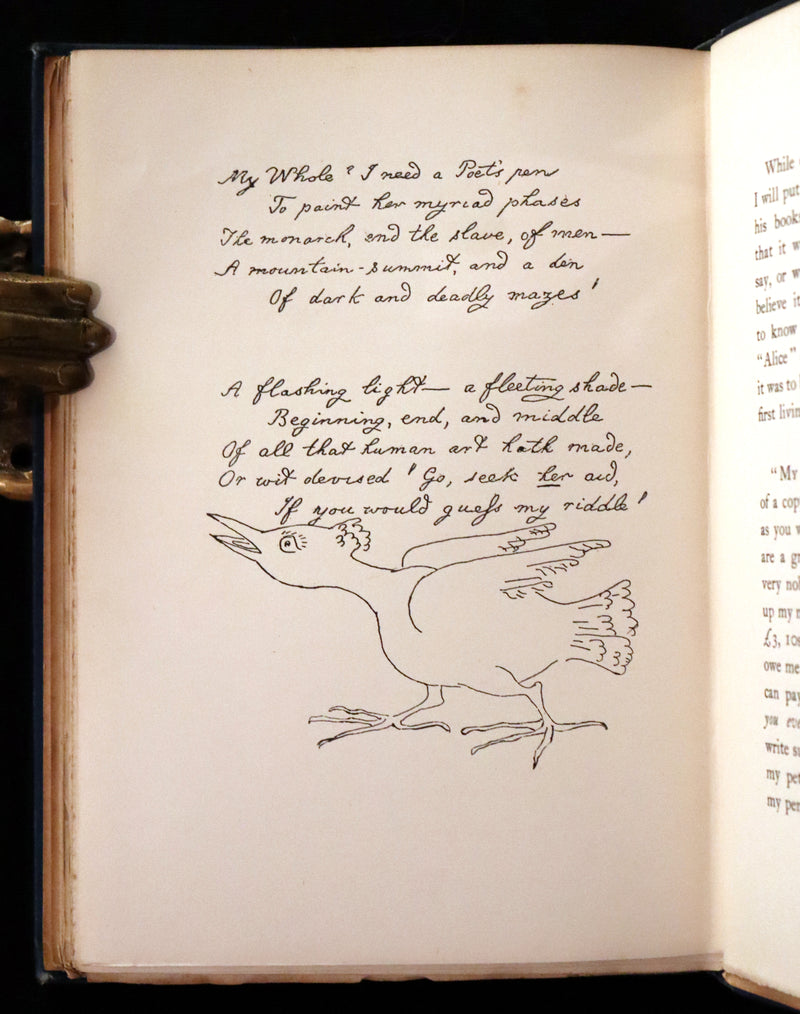 My Whole? I need a Poet's pen
To paint her myriad phases
The monarch, and the slave, of men—
A mountain-summit, and a den
Of dark and deadly mazes!
A flashing light— a fleeting shade—
Beginning, end, and middle
Of all that human art hath made,
Or wit devised! Go, seek her aid,
If you would guess my riddle!
While
I will put
his book
that it w
say, or w
believe it
to know
"Alice"
it was to
first livin
"My
of a cop
as you w
are a g
very no
up my
£3, 10s
owe me
can pay
you eve
write s
my pe
my per